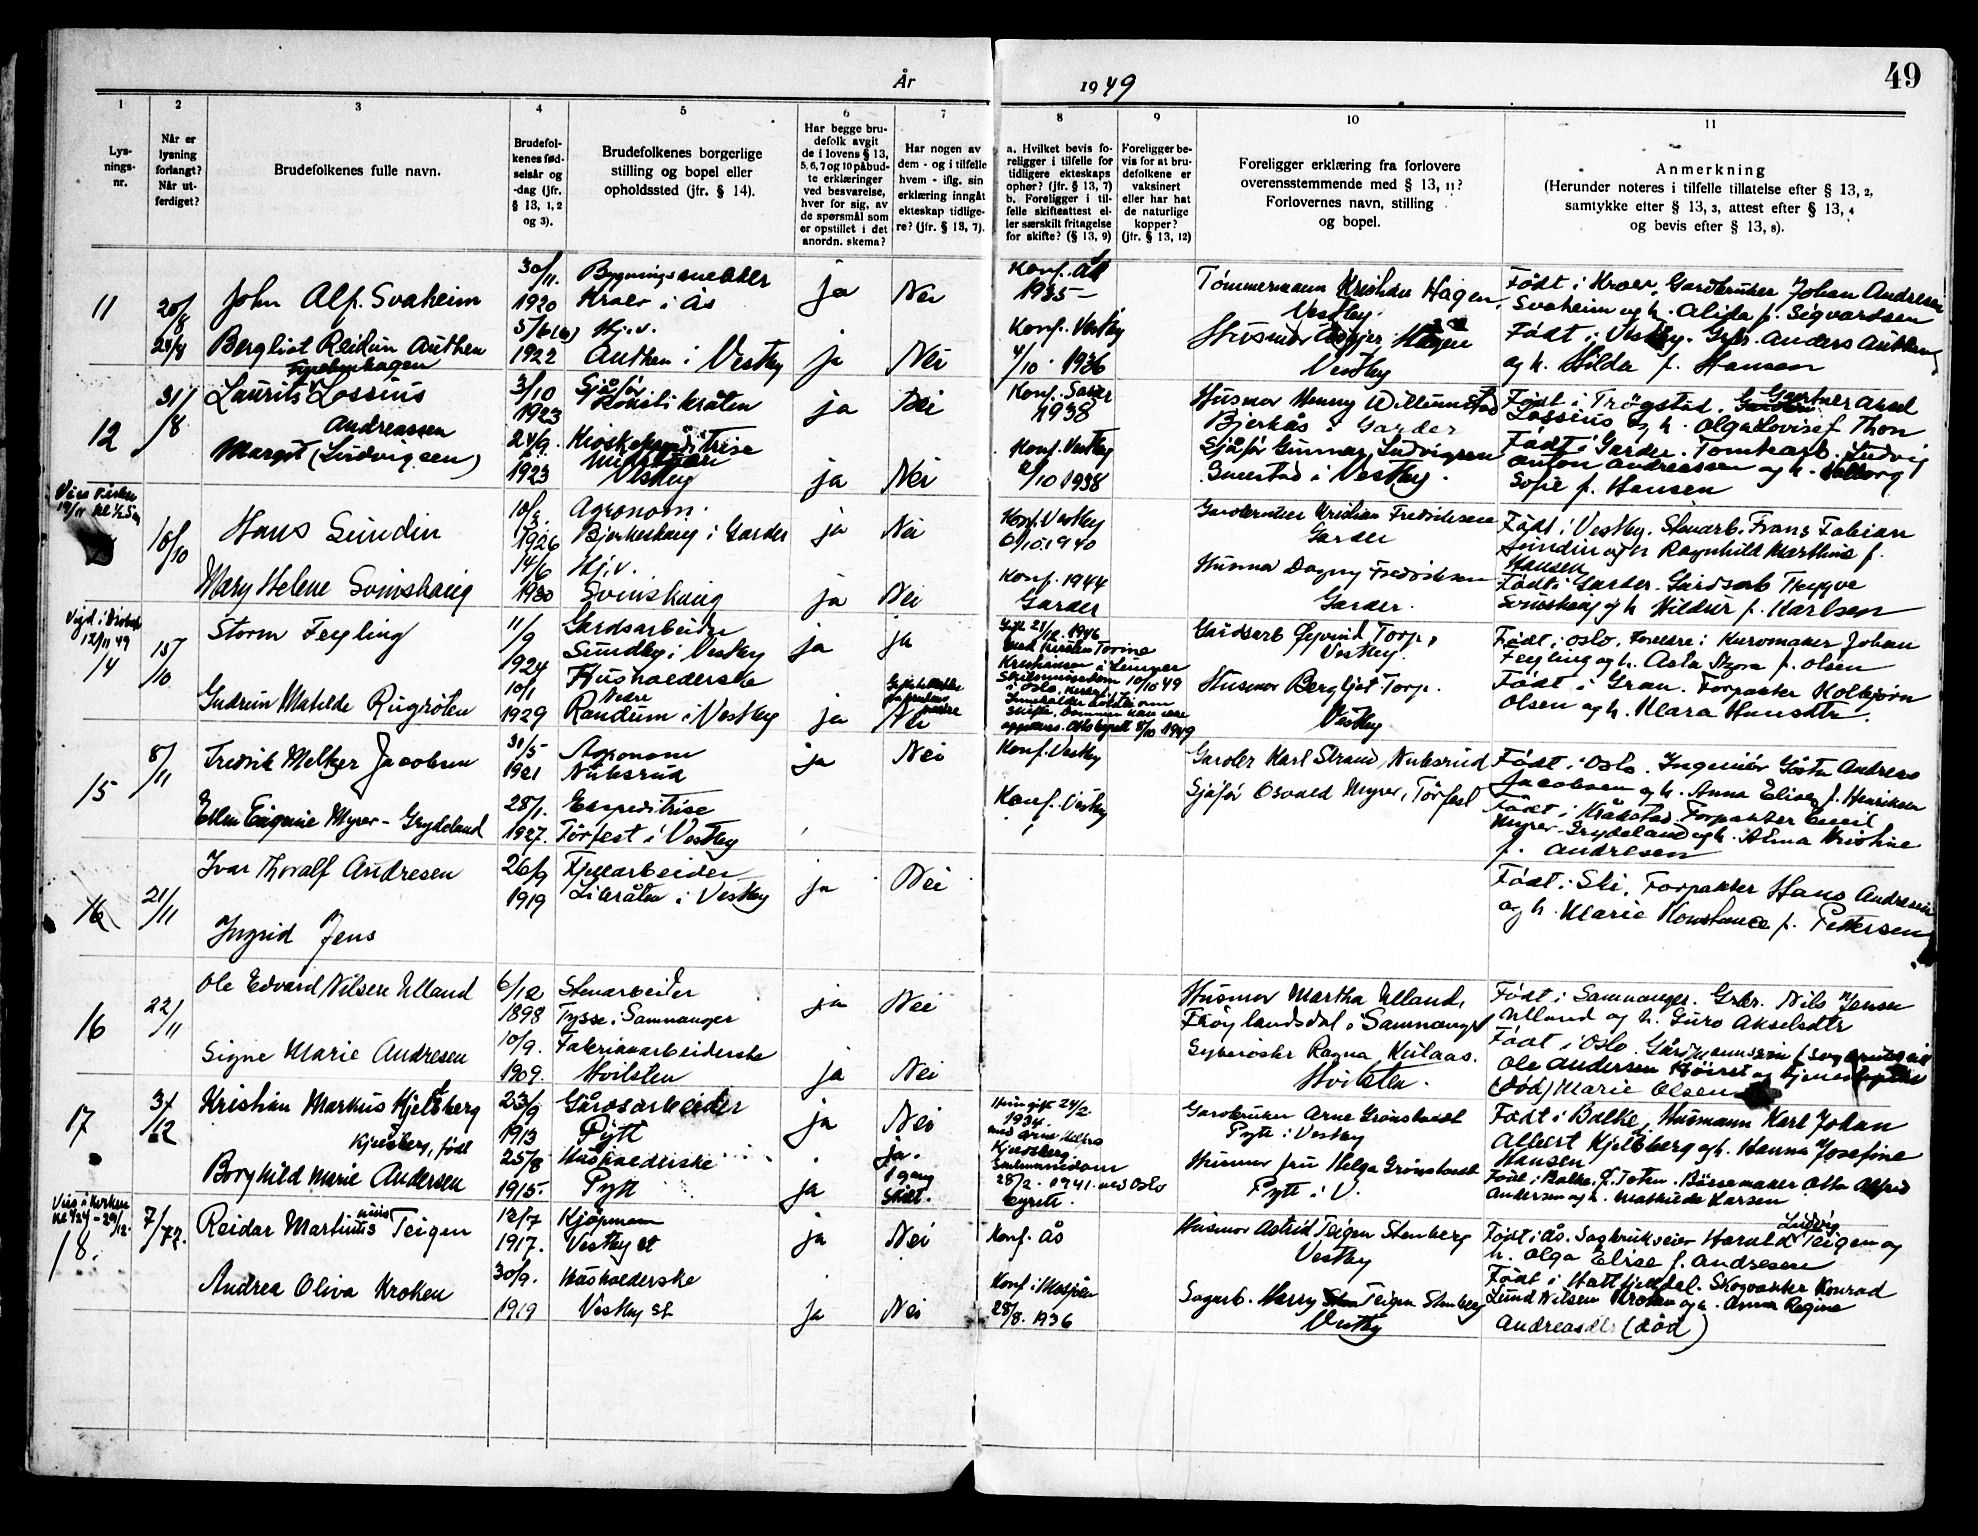 49
År 1949
1
2
3
4
5
6
7
8
9
10
11
Lys-
nings-
nr.
Når er
lysning
forlangt?
Når ut-
ferdiget?
Brudefolkenes fulle navn.
Brudefol-
kenes fød-
selsår og
-dag (jfr.
§ 13, 1, 2
og 3).
Brudefolkenes borgerlige
stilling og bopel eller
opholdssted (jfr. § 14).
Har begge bru-
defolk avgit
de i lovens § 13,
5, 6, 7 og 10 påbud-
te erklæringer
ved besvarelse,
hver for sig, av
de spørsmål som
er opstillet i det
anordn. skema?
Har nogen av
dem - og i tilfelle
hvem - iflg. sin
erklæring inngått
ekteskap tidlige-
re? (jfr. § 13, 7).
a. Hvilket bevis fo-
religger i tilfelle for
tidligere ekteskaps
ophør? (jfr. § 13, 7)
b. Foreligger i til-
felle skifteattest el-
ler særskilt fritagelse
for skifte? (§ 13, 9)
Foreligger be-
vis for at bru-
defolkene er
vaksinert
eller har hat
de naturlige
kopper?
(jfr. § 13, 12)
Foreligger erklæring fra forlovere
overensstemmende med § 13, 11?
Forlovernes navn, stilling
og bopel.
Anmerkning
(Herunder noteres i tilfelle tillatelse efter § 13, 2,
samtykke efter § 13, 3, attest efter § 13, 4
og bevis efter § 13, 8).
11
20/8
John Alf. Svaheim
30/11.
1920
Bygningssnekker
Kroer i Ås
ja
Nei
Konf. Ås
1935 -
Tømmermann Kristian Hagen,
Vestby.
Født i Kroer, Gardbruker Johan Andresen
Svaheim og h. Alida f. Sigvardsen
Bergliot Reidun Authen
1922
Hj.v.
Authen i Vestby
ja
Nei
Konf. Vestby
4/10. 1936
Husmor Hagen
Vestby
Født i Vestby. Gbr. Anders Authen
og h. Hilda f. Hansen
12
31/8
Laurits Lossius
3/10
1923
Sjåfør
ja
Nei
Konf.
1938
Husmor Henny
Bjerkås i Garder
Født i Trøgstad. Gartner Aksel
Lossius og h. Olga Lovise f. Thon
Andreassen
Margit (Ludvigsen)
24/9.
1923
Vestby
ja
Nei
Konf. Vestby
2/10 1938
Sjåfør Gunnar Ludvigsen
i Vestby.
Født i Garder. Tomtearb. Ludvig
Anton Andreassen og h.
Sofie f. Hansen
10/10
Hans Sundin
10/3.
1926
Agronom.
Bjerkeskaug i Garder
ja
Nei
Konf. Vestby
6/10 1940
Gardbruker Kristian Fredriksen
Garder
Født i Vestby. Stenarb. Frans Fabian
Sundin og h Ragnhild Marthine f.
Hansen
Mary Helene Svinskaug
14/6
1930
Hj.v.
Svinskaug
ja
Nei
Konf. 1944
Garder
Husmor Dagny Fredriksen
Garder.
Født i Garder. Gardsarb Trygve
Svinskaug og h Hildur f. Karlsen
12/11 49
14
15/10
Storm Feyling
11/9
1924
Gardsarbeider
Sundby i Vestby
ja
ja
Gift 21/12. 1946
med Kirsten Torine
Kristiansen
Skilsmissedom 10/10 49
Gardsarb Øyvind Torp,
Vestby.
Født i Oslo. Foreldre: Kurvmaker Johan
Feyling og h. Asta f. Olsen
Gudrun Matilde Rugrøten
10/1
1929
Husholderske
Nedre
Randum i Vestby
ja
Nei
Husmor Bergljot Torp.
Vestby
Født i Gran. Forpakter Kolbjørn
Olsen og h. Klara
15
8/11
Fredrik Melker Jacobsen
31/5-
1921
Agronom
Nubsrud
ja
Nei
Konf. Vestby
Garder Karl Strand, Nubsrud
Født i Oslo. Ingeniør Gösta Andreas
Jacobsen og h. Anna Elise f. Henriksen
Ellen Eugenie Myrer-Grydeland
28/1.
1927.
Ekspeditrise
Torfest i Vestby
Konf. Vestby
Sjåfør Osvald Myrer, Torfest
Født i Kråkstad. Forpakter Emil
Myrer-Grydeland og h. Alma Kristine
f. Andresen
16
21/11
Ivar Thoralf Andresen
26/9
1919
Fjellarbeider
i Vestby
ja
Nei
Født i Ski. Forpakter Hans Andresen
og h. Marie Konstance f. Pettersen
Ingrid Jens
16
22/11
Ole Edvard Nilsen Ulland
6/12
1898
Stenarbeider
Tysse i Samnanger
ja
Nei
Husmor Martha Ulland,
Frøylandsdal i Samnanger
Født i Samnanger. Gbr. Nils Jensen
Ulland og h. Guro Akselsdtr
Signe Marie Andresen
10/9.
1909.
Fabrikkarbeiderske
Hvitsten
ja
Nei
Ragna Kulaas.
Hvitsten.
Født i Oslo.
Ole Andersen
(død) Marie Olsen
17
3/12
Kristian Markus Kjelsberg
23/9
1913
Gårdsarbeider
Pytt
ja
Nei
Gardbruker Arne Grønstvedt
Pytt i Vestby
Født i Balke, Husmann Karl Johan
Albert Kjelsberg og h. Hanna Josefine
Hansen
Kjelsberg, født
Borghild Marie Andersen
25/8
1915.
Husholderske
Pytt
ja
ja.
1 gang
skilt.
24/2
1934.
Skilsmissedom
28/2. 1941. ved Oslo
byrett
Husmor fru Helga Grønstvedt
Pytt i V.
Født i Balke, Ø. Toten. Børsemaker Otto Alfred
Andersen og h. Mathilde Larsen
18.
7/12.
Reidar Martinius Teigen
12/7
1917.
Kjøpmann
Vestby st
ja
Nei
Konf. Ås
Husmor Astrid Teigen Stenberg
Vestby
Født i Ås. Sagbrukseier Harald Ludvig Teigen og
h. Olga Elise f. Andresen
Andrea Oliva Kroken
30/9.
1919
Husholderske
Vestby st
ja
Nei
Konf. i Mosjøen
28/8. 1936
Sagarb. Harry Teigen Stenberg
Vestby
Født i Hattfjelldal. Skogvokter Konrad
Lund Nilsen Kroken og h. Anna Regine
Andreasdtr (død)